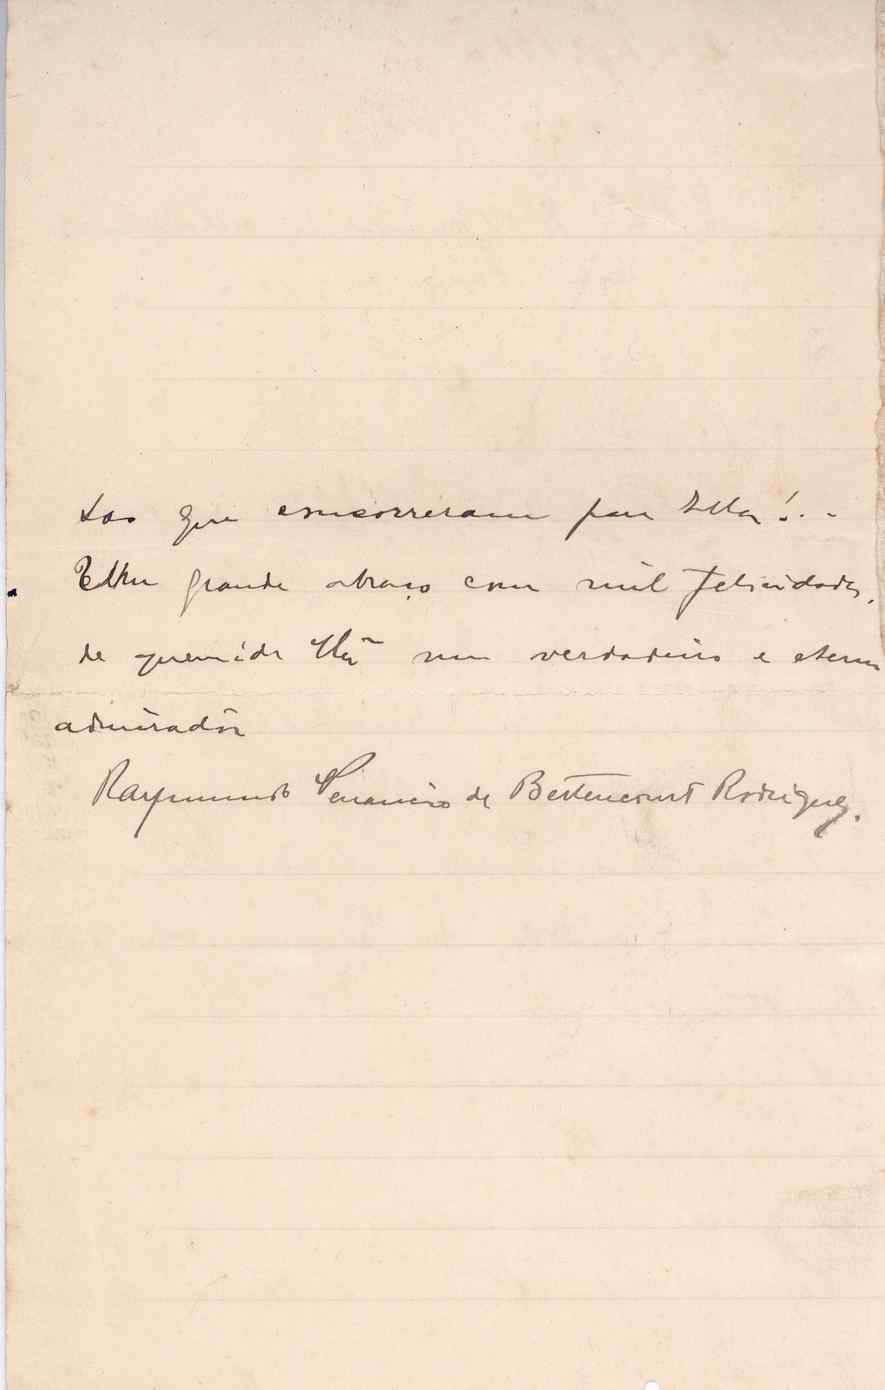 tos que concorreram para ella!..
Um grande abraço com mil felicidades,
de querida um verdadeiro e eterno
admirador
Raymundo Venancio de Bettencourt Rodrigues.